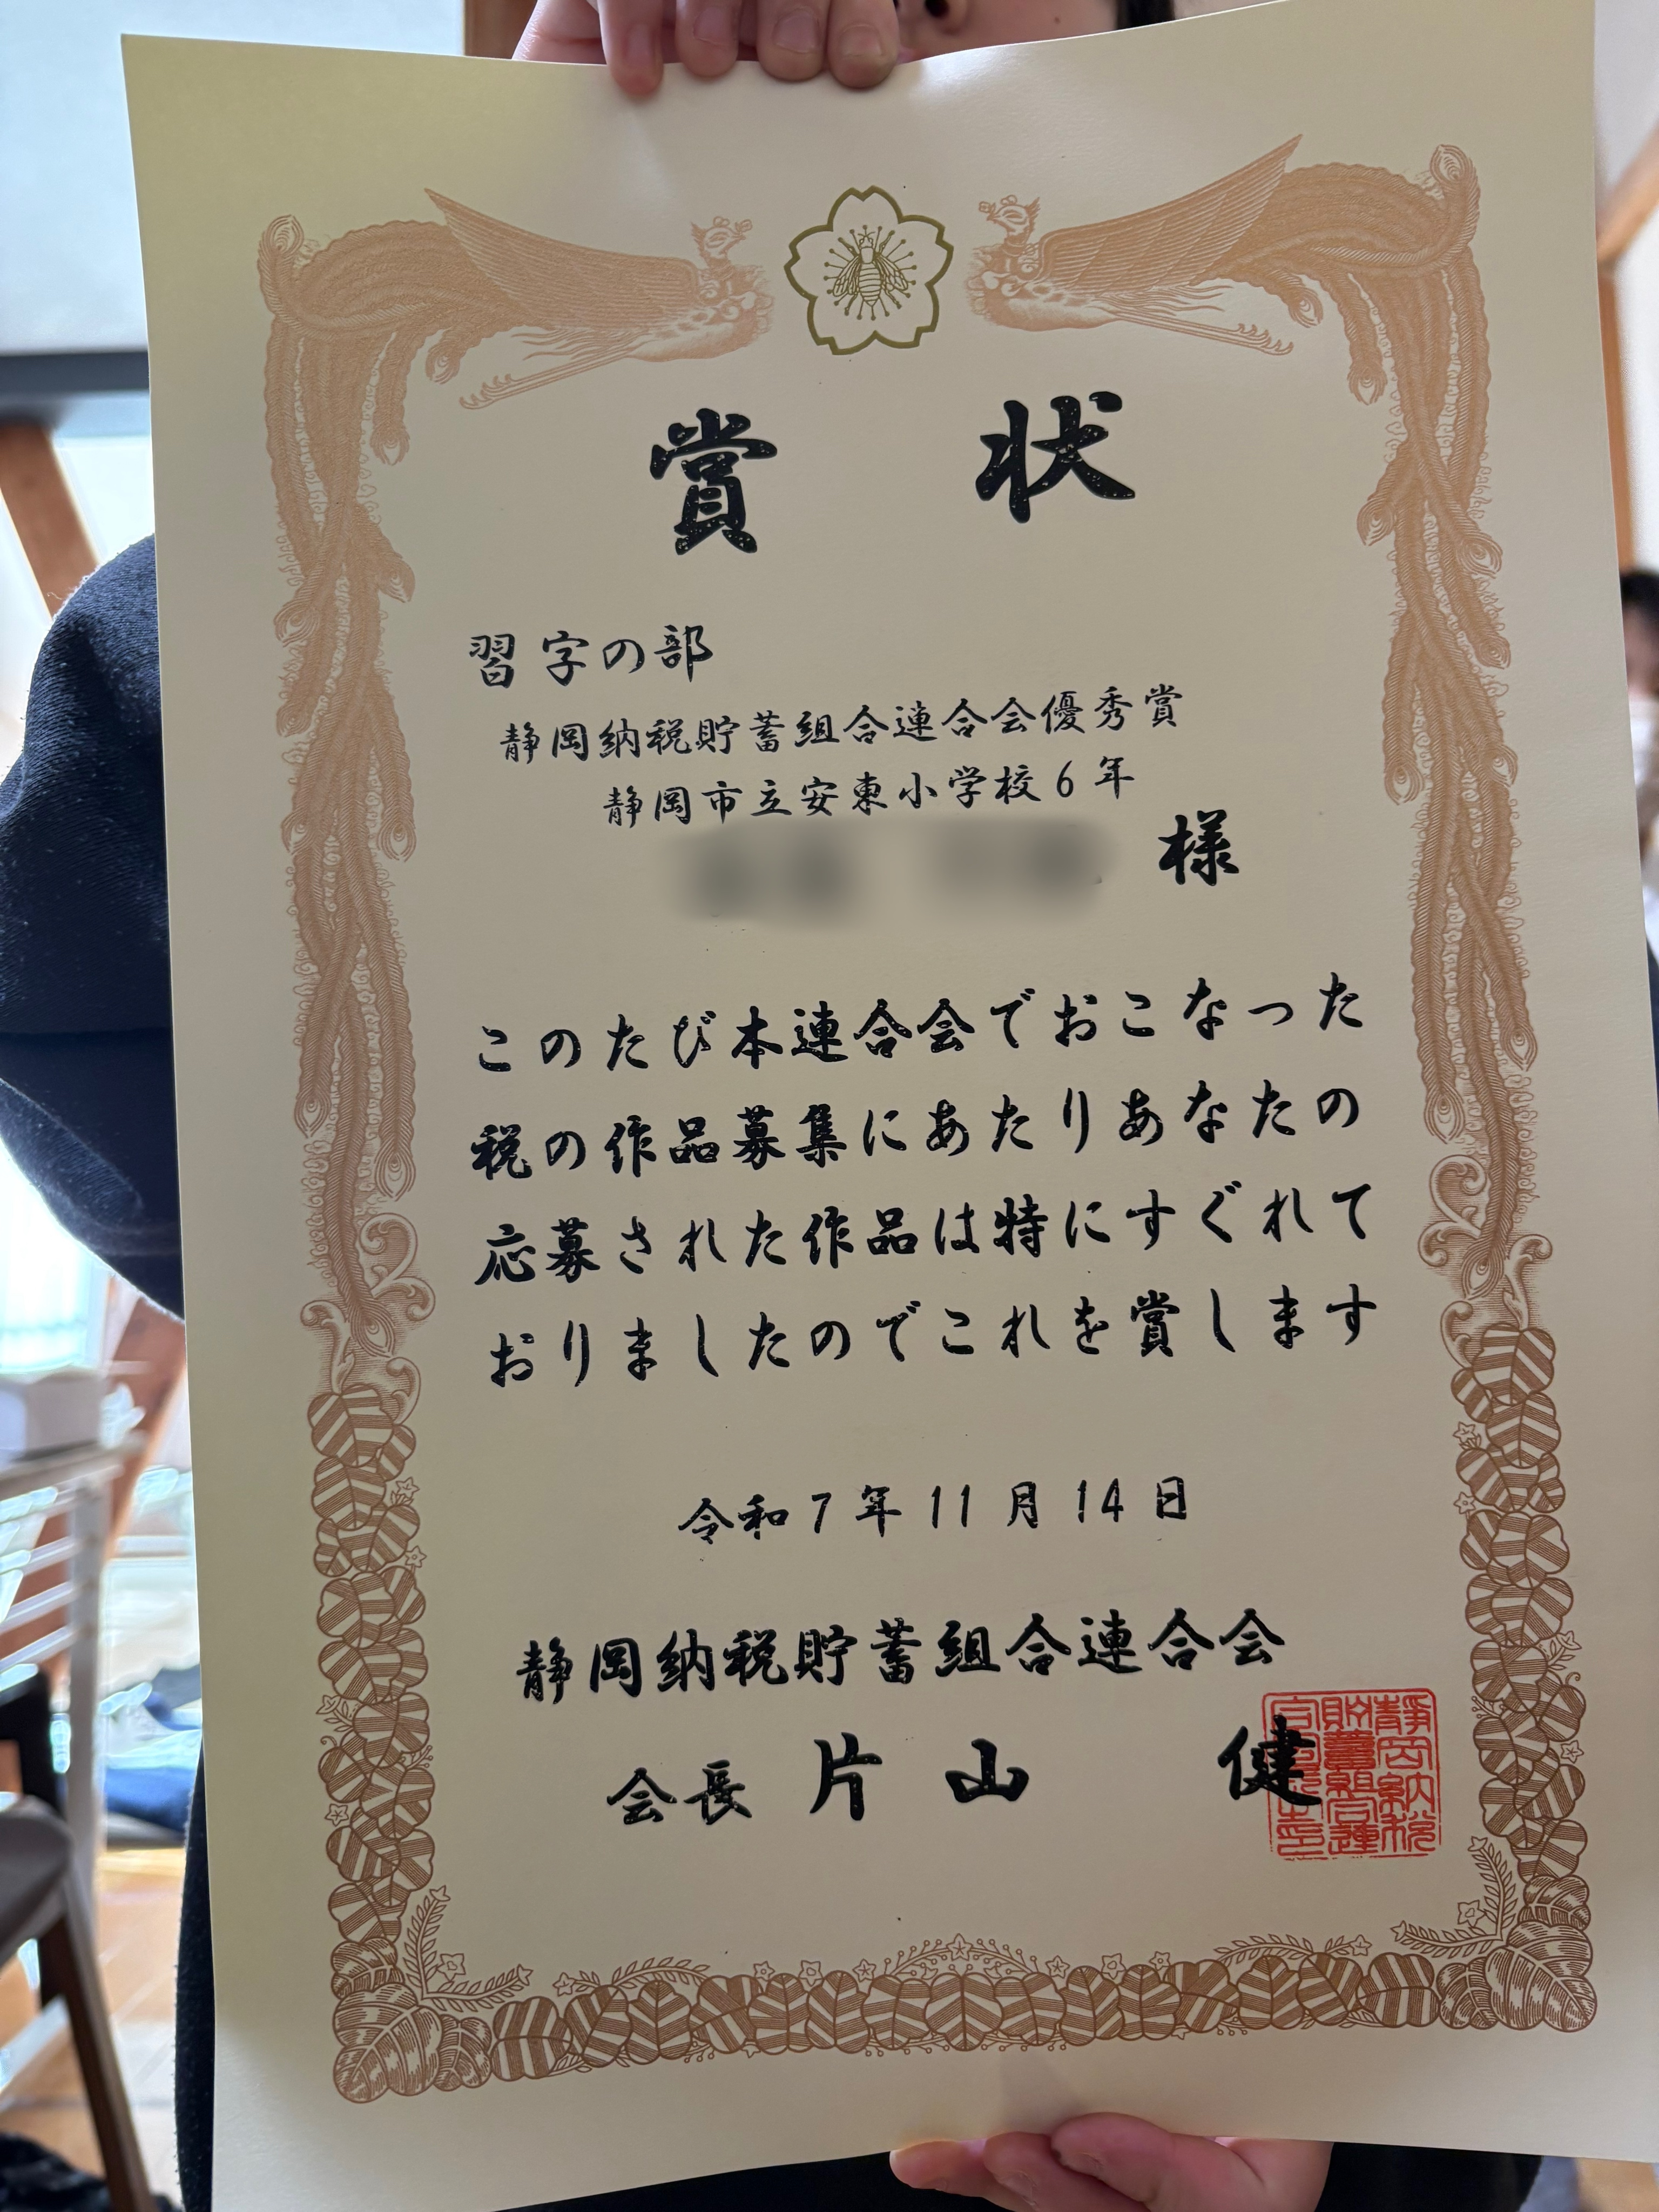 賞状
習字の部
静岡納税貯蓄組合連合会優秀賞
静岡市立安東小学校6年
様
このたび本連合会でおこなった
税の作品募集にあたりあなたの
応募された作品は特にすぐれて
おりましたのでこれを賞します
令和7年11月14日
静岡納税貯蓄組合連合会
会長 片山 健